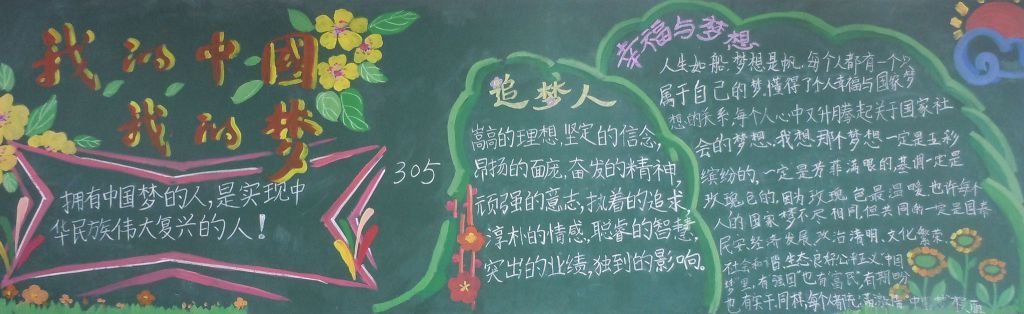 我的中國
我的梦
拥有中国梦的人,是实现中
华民族伟大复兴的人!
305
追梦人
嵩高的理想,坚定的信念,
昂扬的面庞,奋发的精神,
顽强的意志,执着的追求,
淳朴的情感,聪睿的智慧,
突出的业绩,独到的影响。
幸福与梦想
人生如船,梦想是帆,每个人都有一个
属于自己的梦,懂得了个人幸福与国家梦
想的关系,每个人心中又升腾起关于国家社
会的梦想,我想那个梦想一定是五彩
缤纷的,一定是芳菲满眼的基调一定是
玫瑰色的,因为玫瑰色最温暖,也许每个
人的国家梦不尽相同,但共同的一定是国泰
民安经济发展,政治清明、文化繁荣
社会和谐、生态良好公平正义"中国
梦"里,有"强国"也有"富民"有期盼
也有实干同样,每个人都